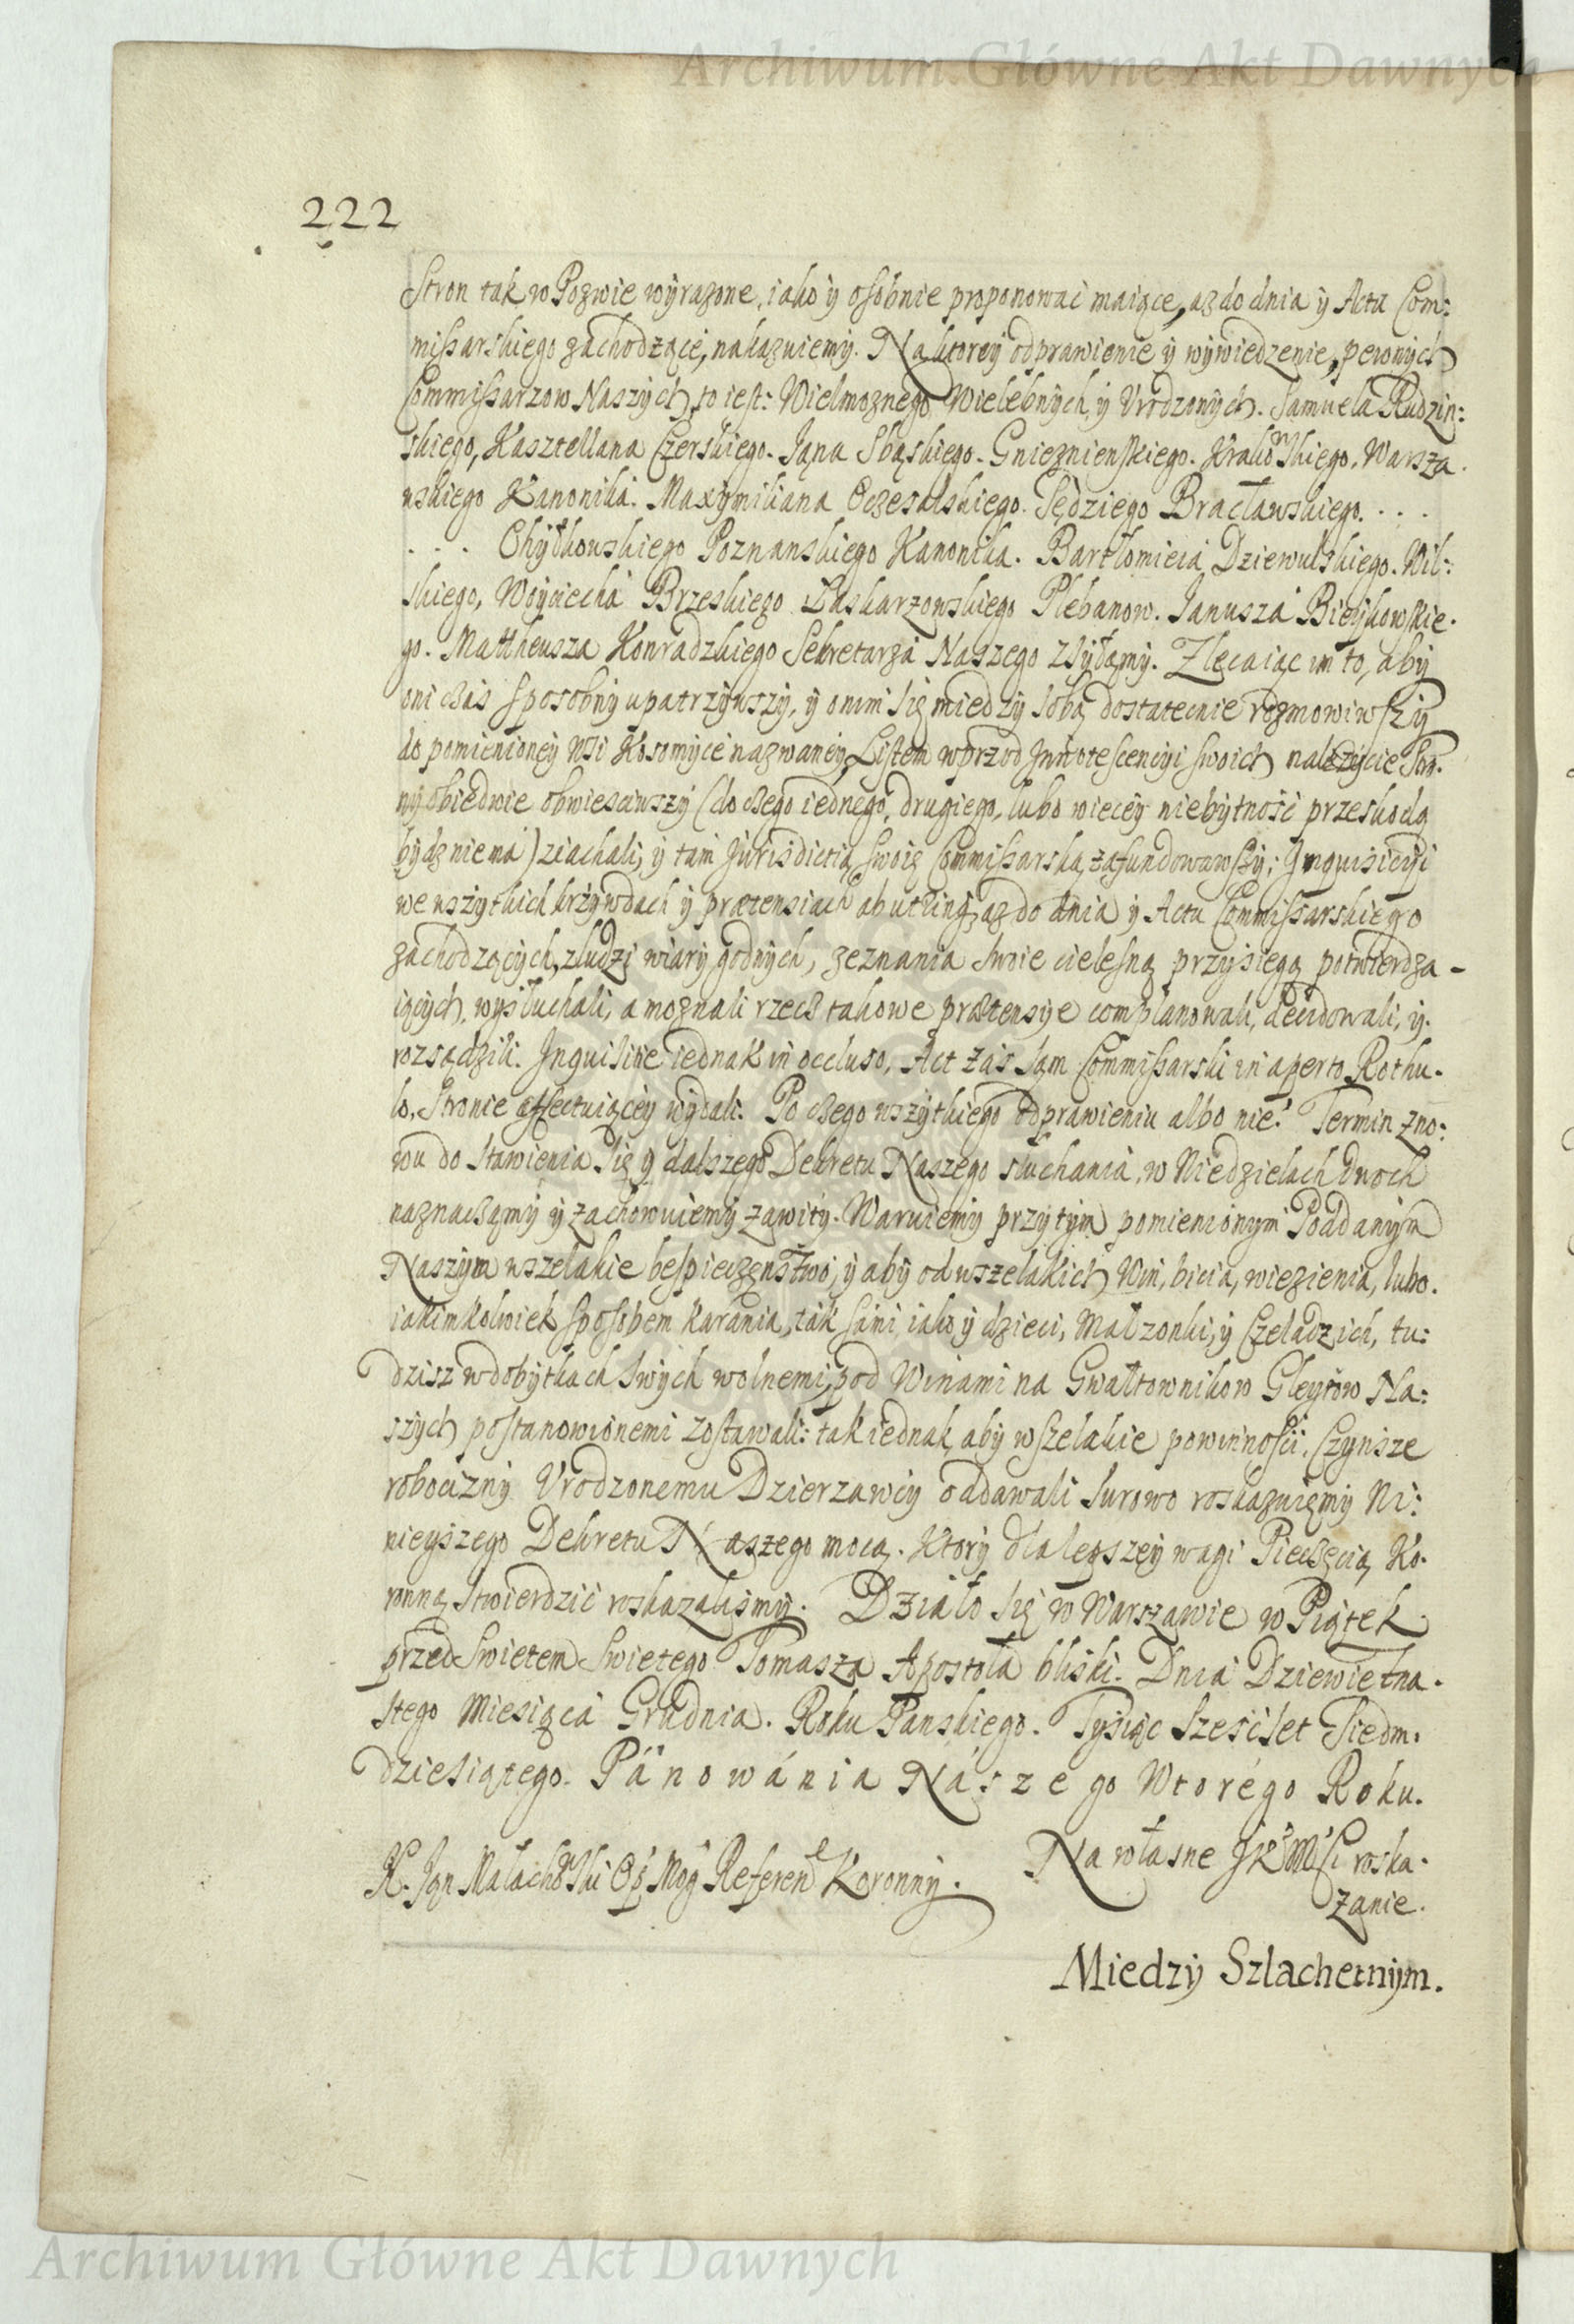 Archiwum Główne Akt Dawnych
222
Stron tak w Pozwie wyrazone, iako y osobnie proponowac maiące, az do dnia y Actu Com:
missarskiego zachodzące, nakazuiemy. Na ktorey odprawienie y wywiedzenie, pewnych
Commissarzow Naszych, to iest: Wielmoznego, Wielebnych, y Vrodzonych. Samuela Rudzin:
skiego, Kasztellana Czerskiego. Jana Sbąskiego. Gnieznienskiego. Krakowskiego. Warsza.
wskiego Kanonika. Maxymiliana Oczesalskiego. Sędziego Bracławskiego. . . .
. . . Chytkowskiego Poznanskiego Kanonika. Bartłomieia Dziewulskiego. Wil:
skiego, Woyciecha Brzeskiego Laskarzowskiego Plebanow. Janusza Bieykowskie.
go. Mattheusza Konradzkiego Sekretarza Naszego zsyłamy. Zlecaiąc im to, aby
oni czas sposobny upatrzywszy, y onim się miedzy sobą dostatecnie rozmowiwszy
do pomienioney Wsi Kosomyce nazwaney, Listem wprzod Innotescencyi swoich nalezycie Stro.
ny obiedwie obwiesciwszy (do czego iednego, drugiego, lubo wiecey niebytność przeskodą
bydz niema) ziachali, y tam Jurisdictią swoię Commissarską zafundowawszy; Inquisicyi
we wszytkich krzywdach y praetensiach ab utrinq; az do dnia y Actu Commissarskiego
zachodzących, z ludzi wiary godnych, zeznania swoie cielesną przysięgą potwierdza-
iących, wysłuchali, a moznali rzecz takowe praetensye complanowali, decidowali, y.
rozsądzili. Inquisitie iednak in occluso, Act zas sąm Commissarski in aperto Rothu.
lo, Stronie affectuiącey wydali. Po czego wszytkiego odprawieniu albo nie: Termin zno:
wu do stawienia się y dalszego Dekretu Naszego słuchania, w Niedzielach dwoch
naznaczamy y zachowuiemy zawity. Waruiemy przytym pomienionym Poddanym
Naszym wszelakie bespieczenstwo, y aby od wszelakich Win, bicia, wiezienia, lubo.
iakimkolwiek sposobem karania, tak sami iako y dzieci, Małzonki, y Czeladz ich, tu:
dzisz w dobytkach swych wolnemi, pod Winami na Gwałtownikow Gleytow Na:
szych postanowionemi zostawali: tak iednak, aby wszelakie powinnosci, Czynsze
robocizny Vrodzonemu Dzierzawcy oddawali surowo roskazuięmy Ni:
nieyszego Dekretu Naszego mocą. Ktory dla lepszey wagi Pieczęcią Ko.
ronną stwierdzić roskazalismy. Działo się w Warszawie w Piątek
przed Swietem Swietego Tomasza Apostoła bliski. Dnia Dziewietna.
stego Miesiąca Grudnia. Roku Panskiego. Tysiąc Sześcset Siedm.
dziesiątego. Pánowánia Nászego Wtorégo Roku.
X. Jan Małachowski Op. Mog. Referend. Koronny.
Na własne JKMsci roska.
zanie.
Miedzy Szlachetnym.
Archiwum Główne Akt Dawnych